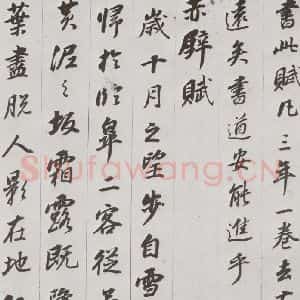 書此賦凡三年一卷去
遠矣書道安能進乎
赤壁賦
歲十月之望步自雪
歸於臨皋二客從
黃泥之坂霜露既降
葉盡脫人影在地
Shufawang.CN